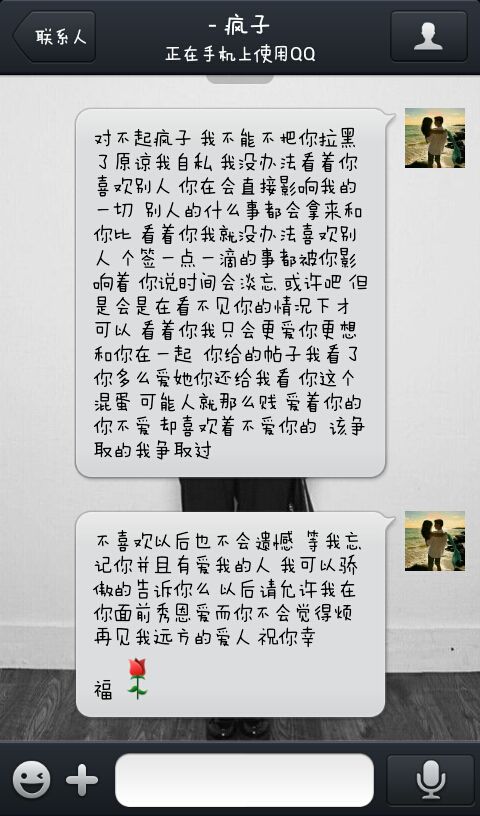 联系人
- 疯子
正在手机上使用QQ
对不起疯子 我不能不把你拉黑
了原谅我自私 我没办法看着你
喜欢别人 你在会直接影响我的
一切 别人的什么事都会拿来和
你比 看着你我就没办法喜欢别
人 个签一点一滴的事都被你影
响着 你说时间会淡忘 或许吧 但
是会是在看不见你的情况下才
可以 看着你我只会更爱你更想
和你在一起 你给的帖子我看了
你多么爱她你还给我看 你这个
混蛋 可能人就那么贱 爱着你的
你不爱 却喜欢着不爱你的 该争
取的我争取过
不喜欢以后也不会遗憾 等我忘
记你并且有爱我的人 我可以骄
傲的告诉你么 以后请允许我在
你面前秀恩爱而你不会觉得烦
再见我远方的爱人 祝你幸
福